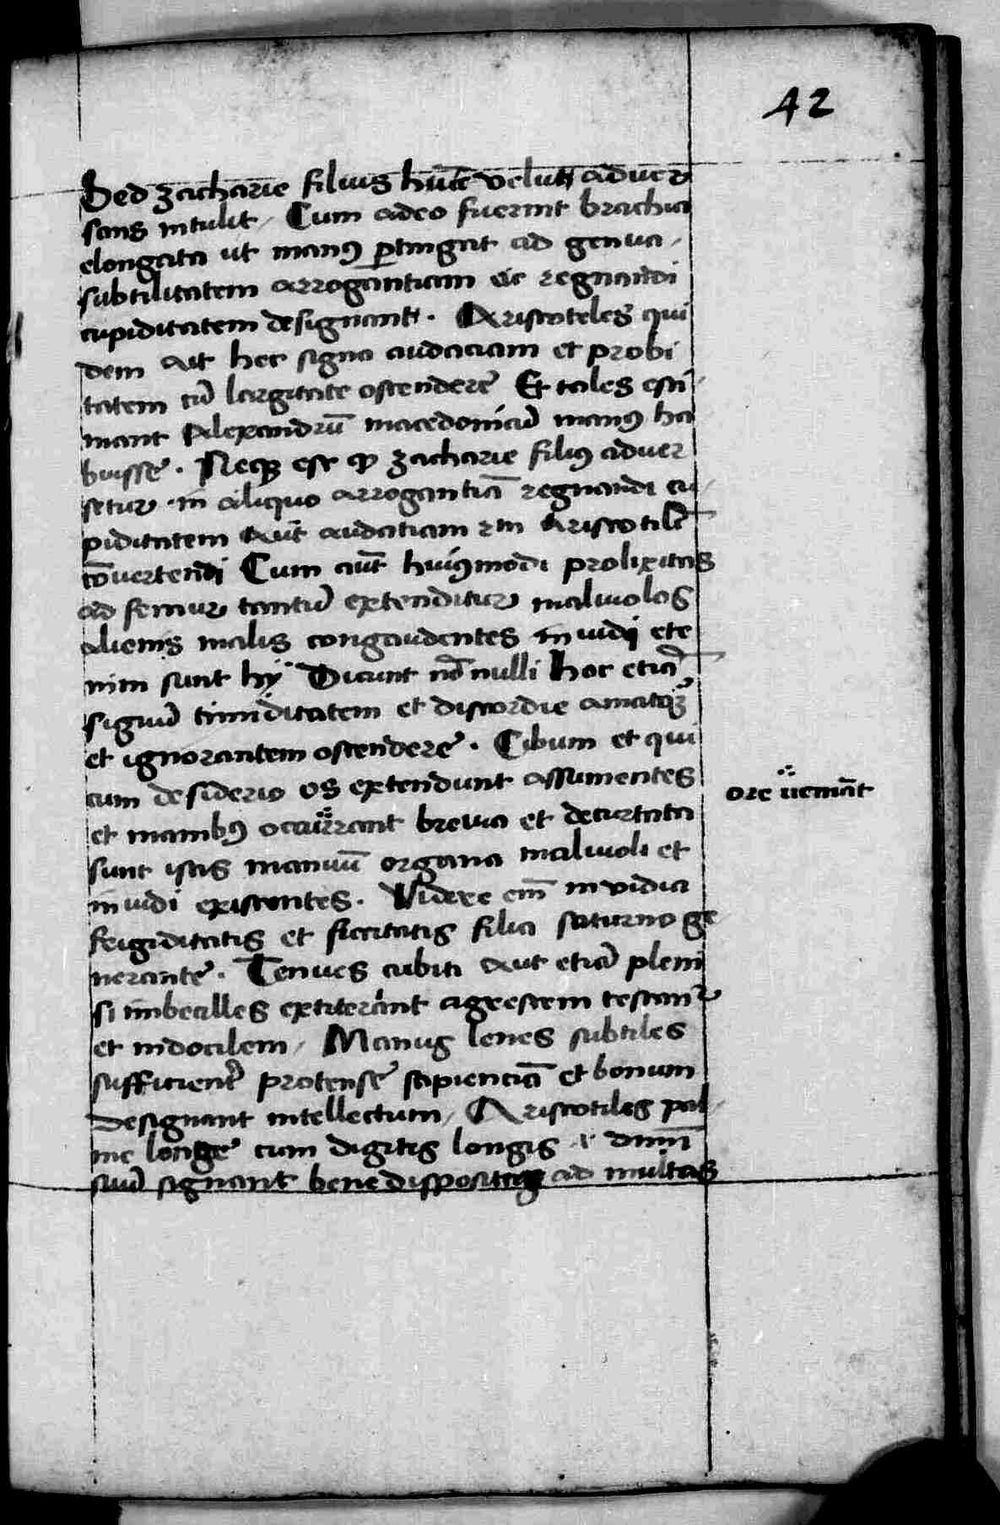 42
Sed zacharie filius hūc velut aduer
sans intulit / Cum adeo fuerint brachia
elongata ut manꝰ ꝑtingāt ad genua /
subtilitatem arrogantiam ac regnandi
cupiditatem designant . Aristoteles qui
dem ait hec signa audaciam et probi
tatem cū largitate ostendere Et tales esti
mant Alexandrū macedonicū manꝰ ha
buisse . Neqꝫ est ꝙ zacharie filiꝰ aduer
setur in aliquo arrogantiā regnandi cu
piditatem aut audatiam Aristotil
cōuertendi Cum aūt huiꝰmodi prolixitas
ad femur tantū extenditur maliuolos
alienis malis congaudentes inuidi ete
nim sunt hÿ Dicunt nō nulli hoc etiā
signū timiditatem et discordie amatoꝝ
et ignorantem ostendere . Cibum et qui
cum desiderio os extendunt assumentes
et manibꝰ occurrant breuia et decurtata
ore ueniāt
sunt istis manuū organa maliuoli et
inuidi existentes . Videre em̄ inuidia
frigiditatis et siccitatis filia saturno ge
nerante . Tenues cubiti aut etiā pleni
si imbecilles extiterint agrestem testant
et indocilem / Manus lenes subtiles
sufficienter protense sapienciā et bonum
designant intellectum / Aristotiles pal
me longe cum digitis longis
signant bene dispositus ad multas